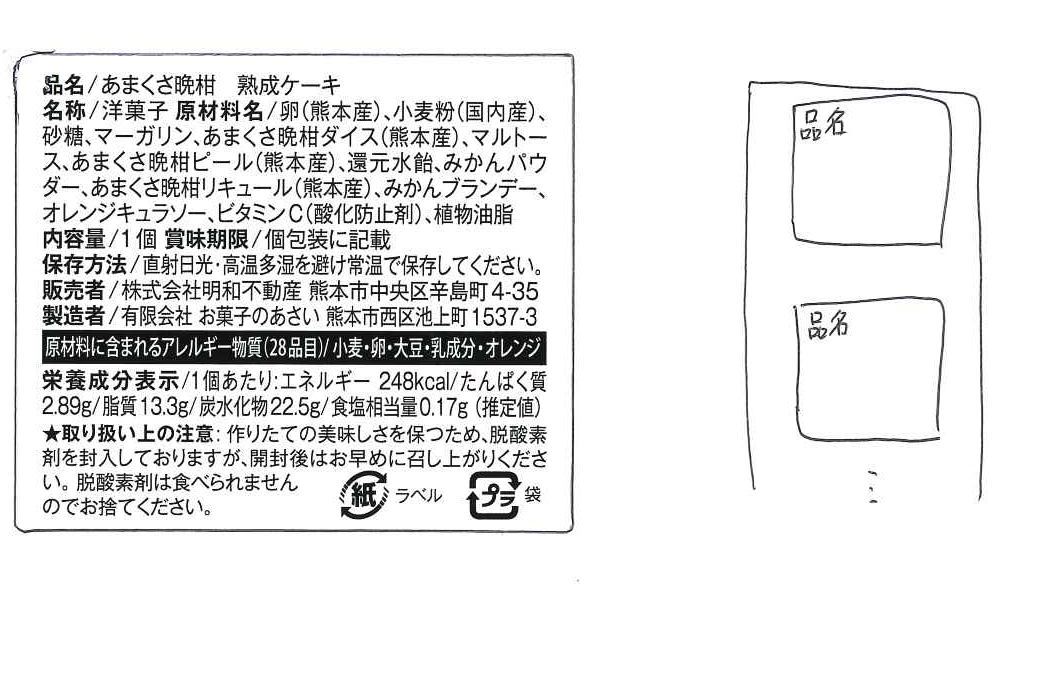 品名/あまくさ晩柑 熟成ケーキ
名称/洋菓子 原材料名/卵(熊本産)、小麦粉(国内産)、
砂糖、マーガリン、あまくさ晩柑ダイス(熊本産)、マルトー
ス、あまくさ晩柑ピール(熊本産)、還元水飴、みかんパウ
ダー、あまくさ晩柑リキュール(熊本産)、みかんブランデー、
オレンジキュラソー、ビタミンC(酸化防止剤)、植物油脂
内容量/1個 賞味期限/個包装に記載
保存方法/直射日光・高温多湿を避け常温で保存してください。
販売者/株式会社明和不動産 熊本市中央区辛島町4-35
製造者/有限会社 お菓子のあさい 熊本市西区池上町1537-3
原材料に含まれるアレルギー物質(28品目)/小麦・卵・大豆・乳成分・オレンジ
栄養成分表示/1個あたり:エネルギー 248kcal/たんぱく質
2.89g/脂質13.3g/炭水化物22.5g/食塩相当量0.17g(推定値)
★取り扱い上の注意:作りたての美味しさを保つため、脱酸素
剤を封入しておりますが、開封後はお早めに召し上がりくださ
い。脱酸素剤は食べられません
のでお捨てください。
紙 ラベル プラ 袋
品名
品名